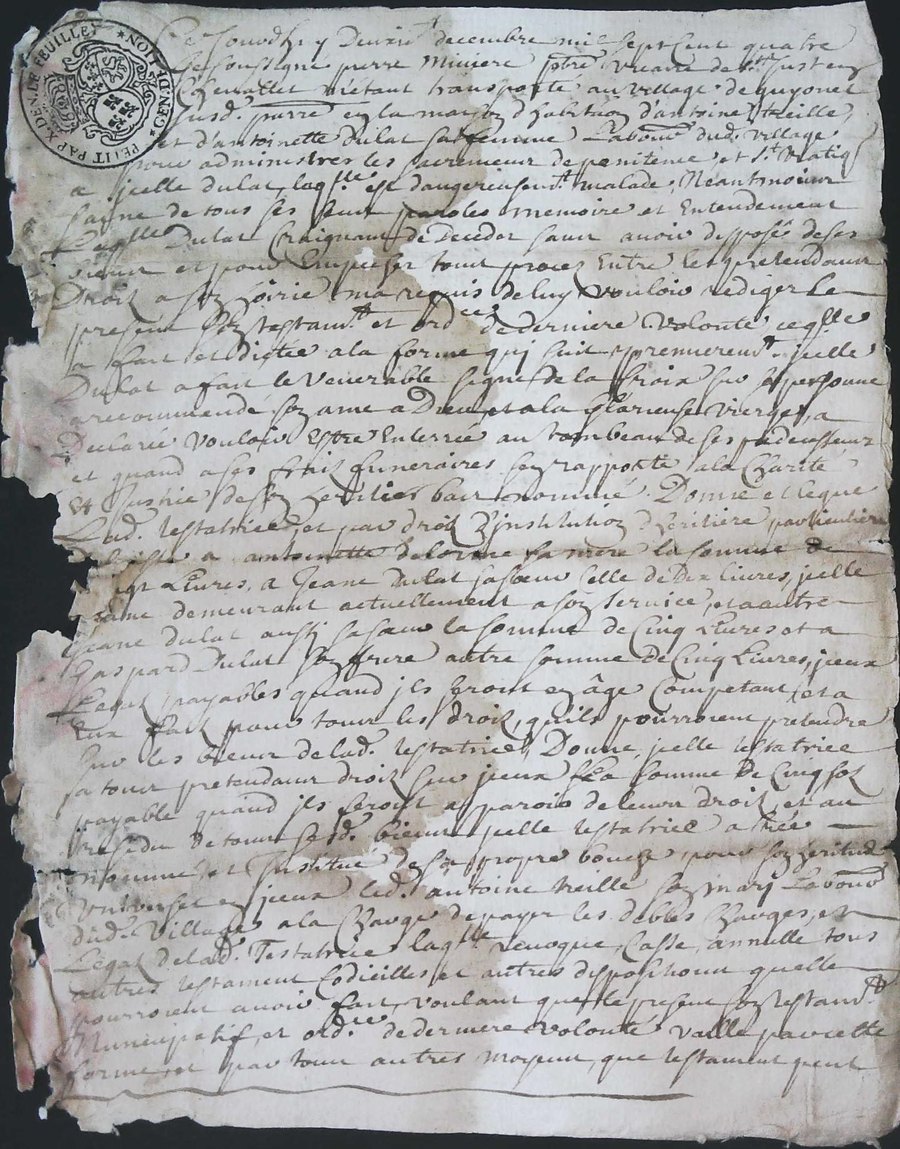 GEN.D.LION PETIT PAP.X DEN.LE FEUILLET
Ce Jourdhuy Deuxie decembre mil sept Cent quatre
Je soussigne pierre Miviere pbre vicaire de St Just en
Chevallet m'étant transporté au village de guyonet
susd. parre en la maison d'habitaon d'antoine treille
et d'antoinette dulat sa femme Laboure dud. village
pour administrer les sacremens de penitence et St Viatiq
a jcelle dulat, laqlle est dangereusent malade, Neantmoins
saine de tous ses sens paroles memoire et Entendement
Laqlle Dulat Craignant de Deceder sans avoir disposé de ses
biens et pour Empecher tous proces Entre les pretendans
Droit a son hoirie ma requis de luy vouloir rediger le
present son testamt et ordce de derniere volonté ceqlle
a fait et dictée a la forme qui suit, premierent jcelle
Dulat a fait le venerable signe de la Croix sur sa personne
a recommandé son ame a Dieu et a la Glorieuse vierge, a
Declarée vouloir Estre Enterrée au tombeau de ses predecesseurs
et quand a ses frais funeraires sen rapporte a la Charité
et Justice de son heritier bas nommé. Donne et legue
Lad. testatrice, et par droit d'institution d'heritiere particuliere
a antoinette delorme sa mere la somme de
Livres, a Jeane Dulat sa soeur celle de Dix livres, jcelle
Jeane demeurant actuellement a son service, et a autre
Jeane dulat aussi sa soeur la somme de Cinq Livres et a
Gaspard Dulat son frere autre somme de Cinq Livres, jceux
Legats payables quand jls seront en âge Competant, et a
Eux fait pour tous les droits qu'ils pourroient pretendre
sur les biens de lad. testatrice, Donne jcelle testatrice
a tous pretendans droit sur jceux la somme de Cinq sols
payable quand jls seront apparoir de leurs droits, et au
residu de tous sesd. biens jcelle testatrice a créé
nommé et Institué de sa propre bouche pour son heritier
Universel en jceux led. antoine treille son mary Laboure
dud. village a la charge de payer les debtes charges, et
Légats de lad. Testatrice laqlle revoque, Casse, annulle tous
autres testament Codicilles et autres dispositions quelle
pourroient avoir fait, voulant que le present son testamt
Nuncupatif, et ordce de derniere volonté vaille par cette
forme, et par tous autres moyens, que testament peut